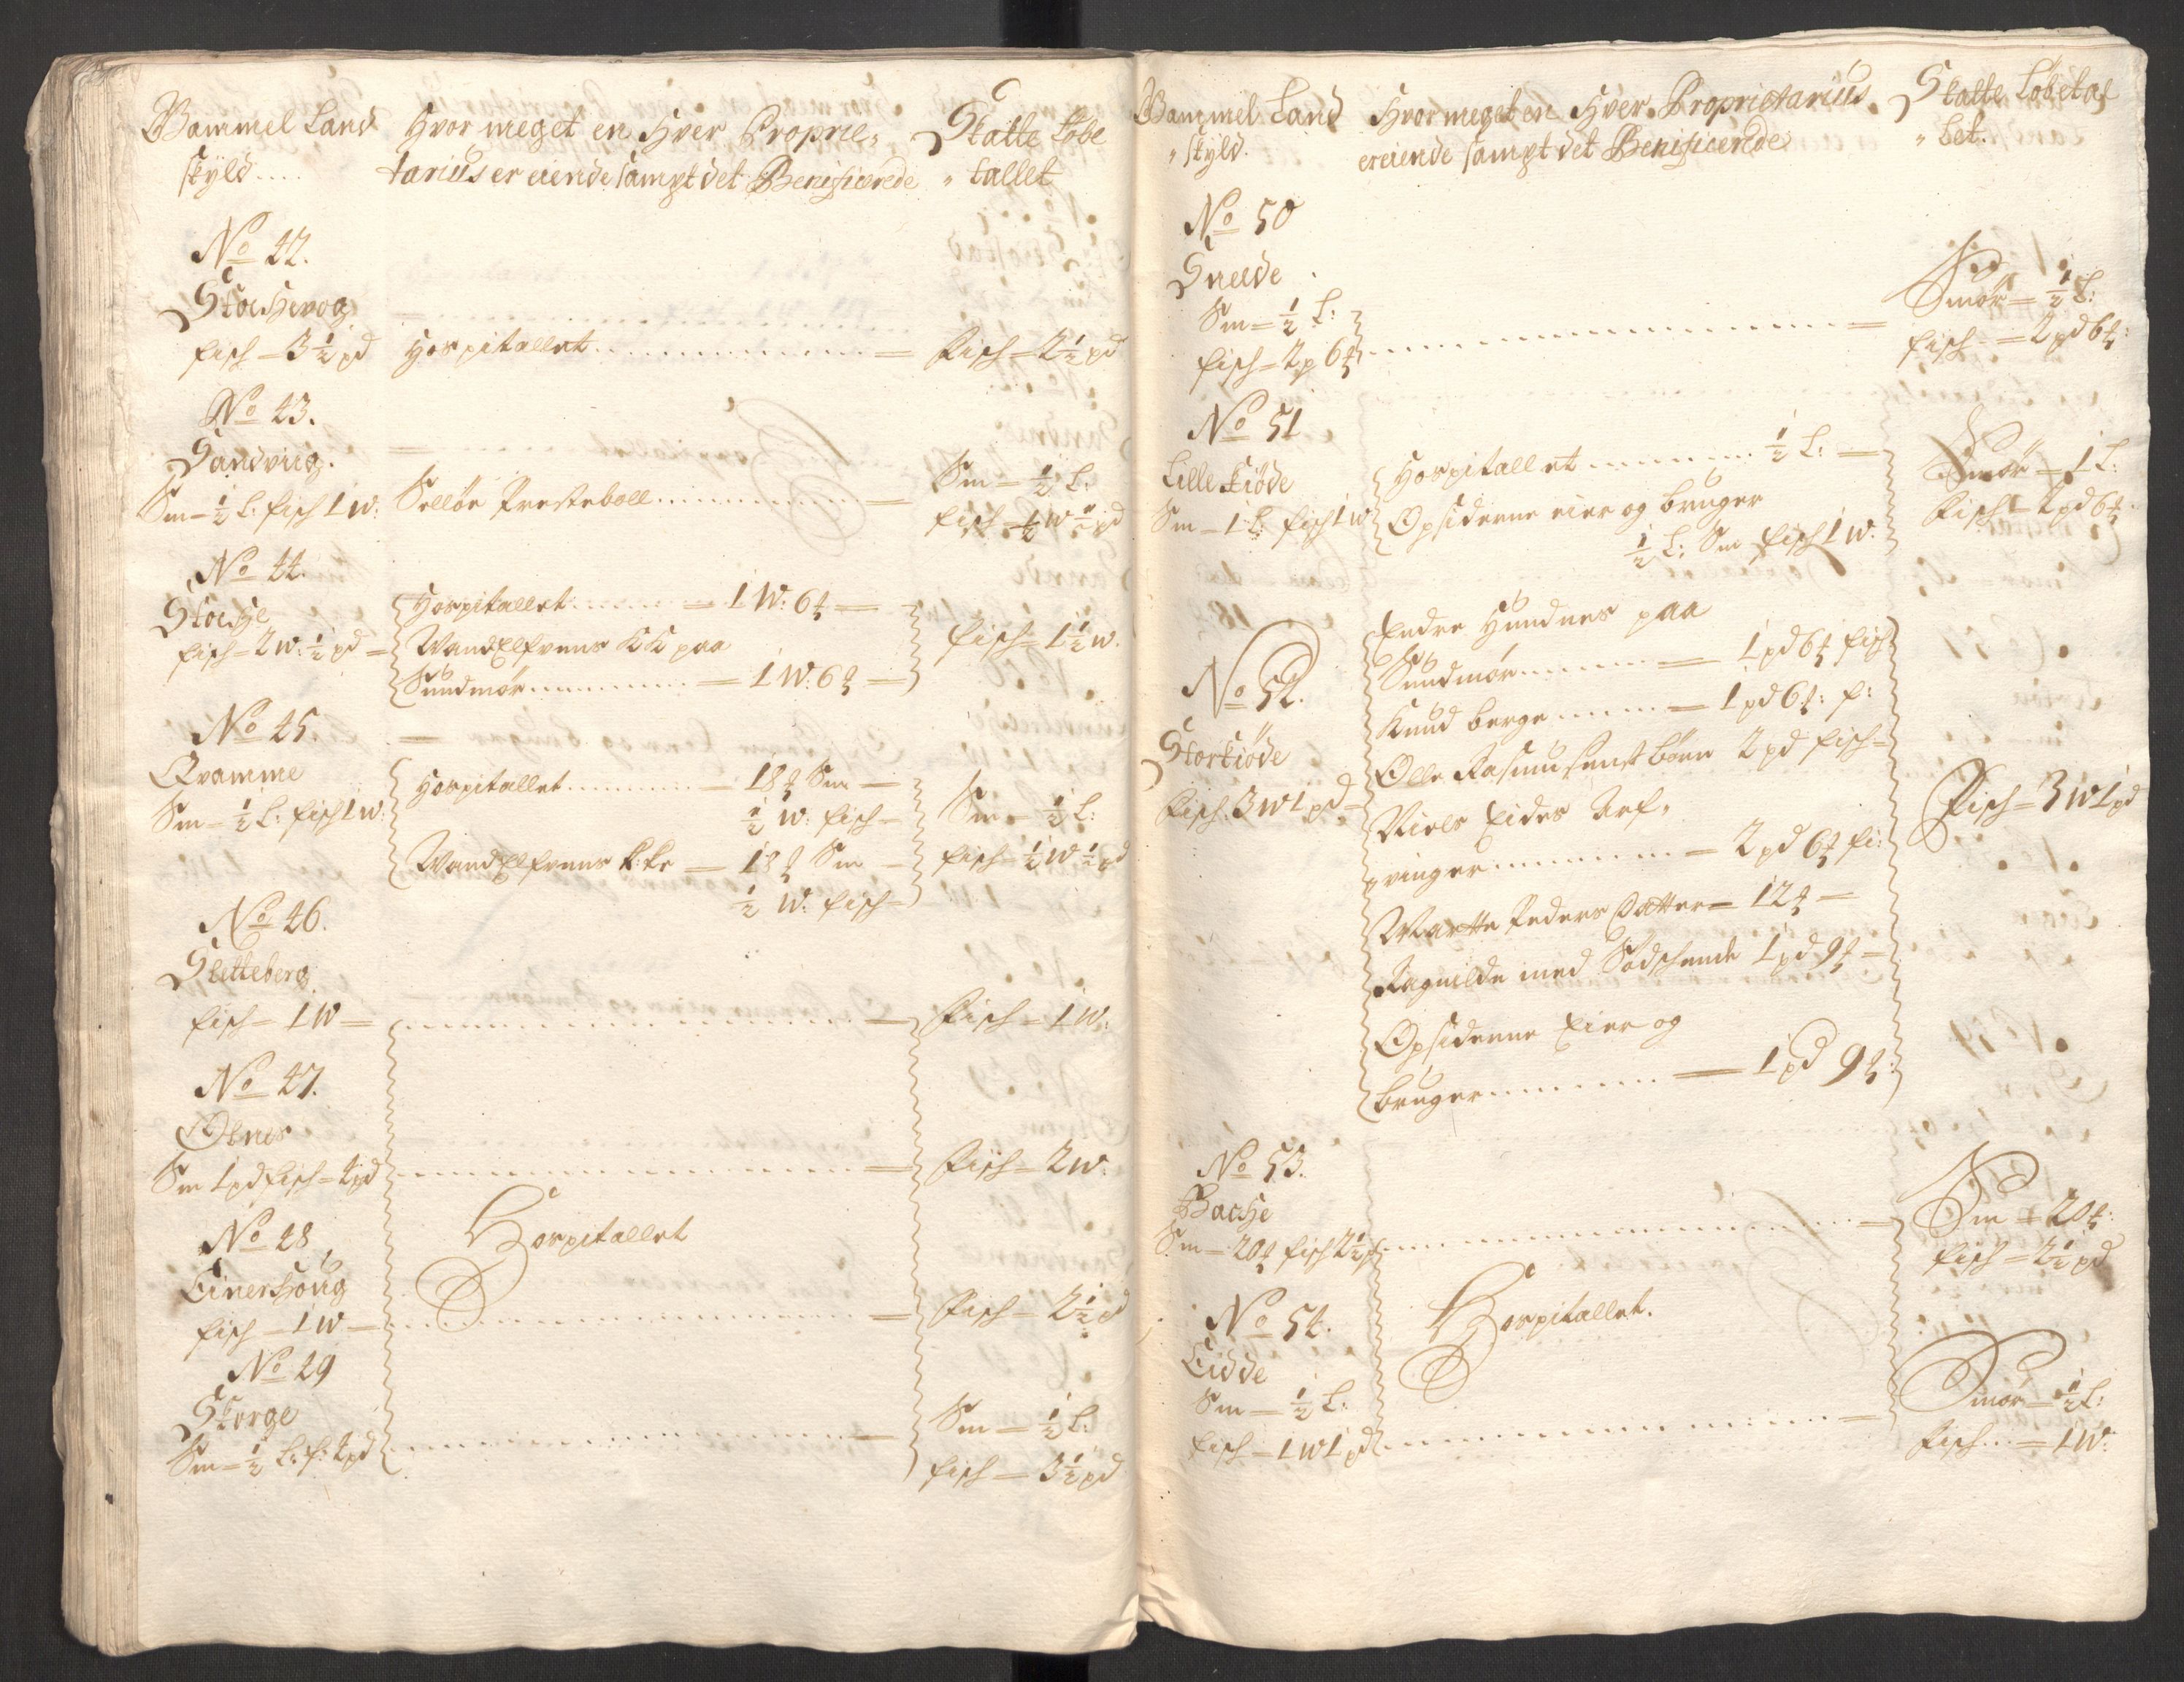 Gammel Land
skyld....
Hvor meget en Hver Proprie„
tarius er eiende sampt det Benificerede
Skatte Løbe
„ tallet
No 42.
Stochevog
fisch = 3½ pd
Hospitallet
Fisch = 2½ pd
No 43.
Sandviig.
Sm = ½ L: fisch 1 W:
Selløe Præsteboll
Sm = ½ L:
fisch
No 44.
Stoche
fisch = 2 W: ½ pd
Hospitallet = 1 W: 6
WandElfvens KK paa
Sundmør = 1 W: 6
fisch = 1½ W.
No 45.
Qvamme
Sm = ½ L: fisch 1 W:
Hospitallet = 18 Sm
½ W: fisch
WandElfvens k:ke = 18 Sm
½ W: fisch
Sm = ½ L:
fisch = ½ W ½ pd
No 46.
Sletteberg
fisch = 1 W
Fisch = 1 W:
No 47.
Øenes
Sm 1 pd fisch = 2 pd
Fisch = 2 W:
No 48
Einershoug
fisch = 1 W
Hospitallet
Fisch = 2½ pd
No 49
Storge
Sm = ½ L: f: 2 pd
Sm = ½ L:
fisch = 3½ pd
Gammel Land
„ skyld.
Hvor meget en Hver Proprietarius
er eiende sampt det Benificerede
Skatte Løbetal
„ let.
No 50
Sneede
Sm = ½ L:
fisch = 2 p 6
Smør = ½ L:
fisch = 2 pd 6
No 51
Lille Kiøde
Sm = 1 L: fisch 1 W
Hospitallet ½ L:
Opsiderne eier og bruger
½ L: Sm fisch 1 W:
Smør = 1 L:
Fisch = 2 pd 6
No 52.
Storkiøde
Fisch: 3 W 1 pd
Endre Hundnes paa
Sundmør = 1 pd 6 fisch
Knud berge = 1 pd 6: f:
Olle Rasmusens børn 2 pd fisch
Niels Eides Arf„
„ vinger = 2 pd 6 fi:
Marthe Peders Datter = 12
Ragnilde med Sødschende 1 pd 9
Opsiderne Eier og
bruger = 1 pd 9:
Fisch = 3 W 1 pd
No 53.
Bache
Sm = 20 fisch 2½ p
Sm = 20:
fisch = 2½ pd
No 54.
Eidde
Sm = ½ L:
fisch = 1 W 1 pd
Hospitallet.
Smør = ½ L:
Fisch = 1 W: